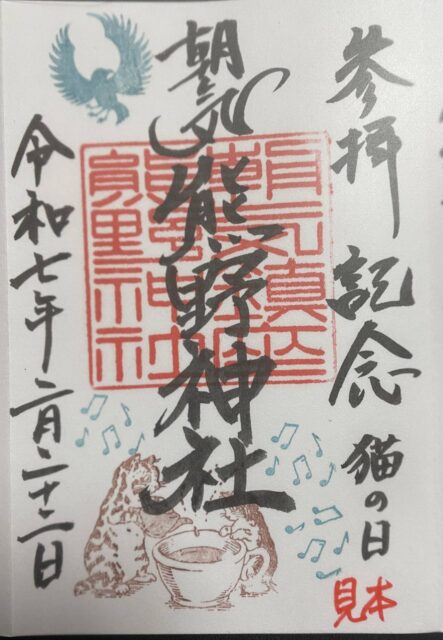 参拝記念
猫の日
見本
朝気熊野神社
令和七年二月二十二日